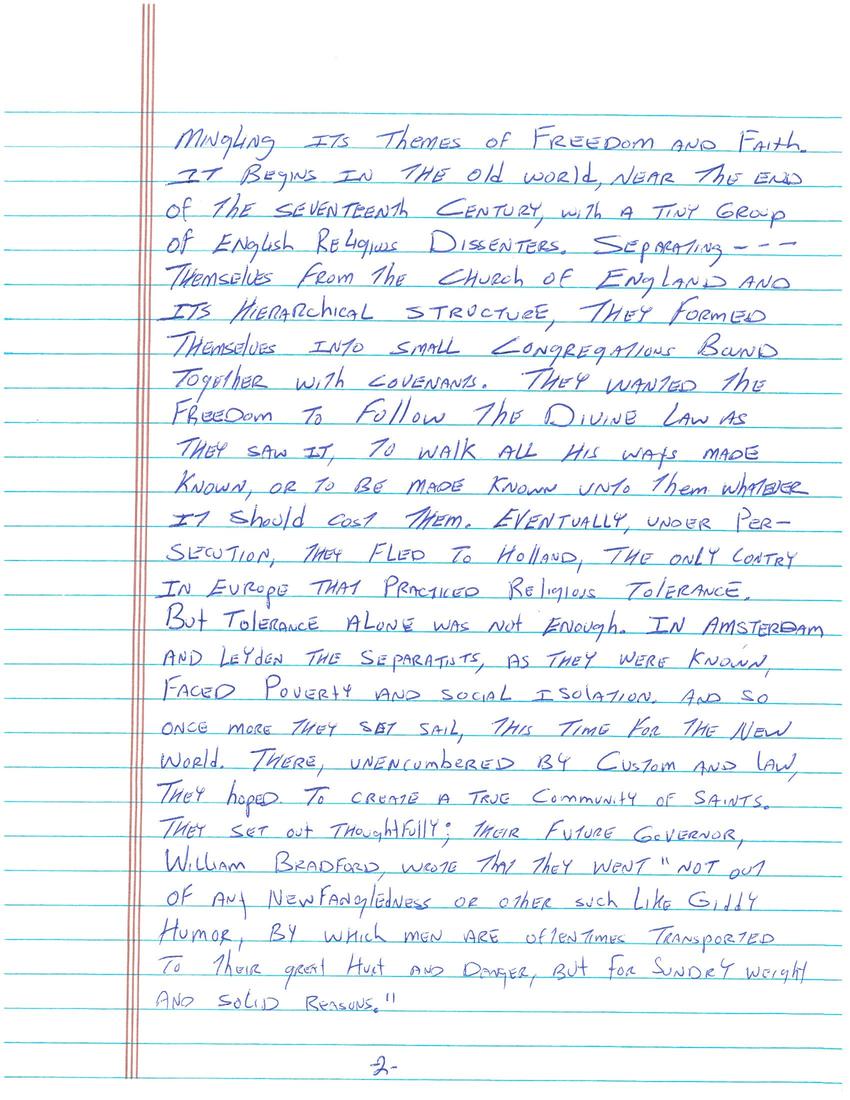 Mingling its themes of Freedom and Faith.
It begins in the old world, near the end
of the seventeenth century, with a tiny group
of English Religious Dissenters. Separating - - -
themselves from the Church of England and
its hierarchical structure, they formed
themselves into small congregations bound
together with covenants. They wanted the
freedom to follow the Divine Law as
they saw it, to walk all His ways made
known, or to be made known unto them whatever
it should cost them. Eventually, under per-
secution, they fled to Holland, the only contry
in Europe that practiced religious tolerance.
But tolerance alone was not enough. In Amsterdam
and Leyden the Separatists, as they were known,
faced poverty and social isolation. And so
once more they set sail, this time for the New
World. There, unencumbered by custom and law,
they hoped to create a true community of saints.
They set out thoughtfully; their future governor,
William Bradford, wrote that they went "not out
of any newfangledness or other such like giddy
humor, by which men are oftentimes transported
to their great hurt and danger, but for sundry weight
and solid reasons."
2-